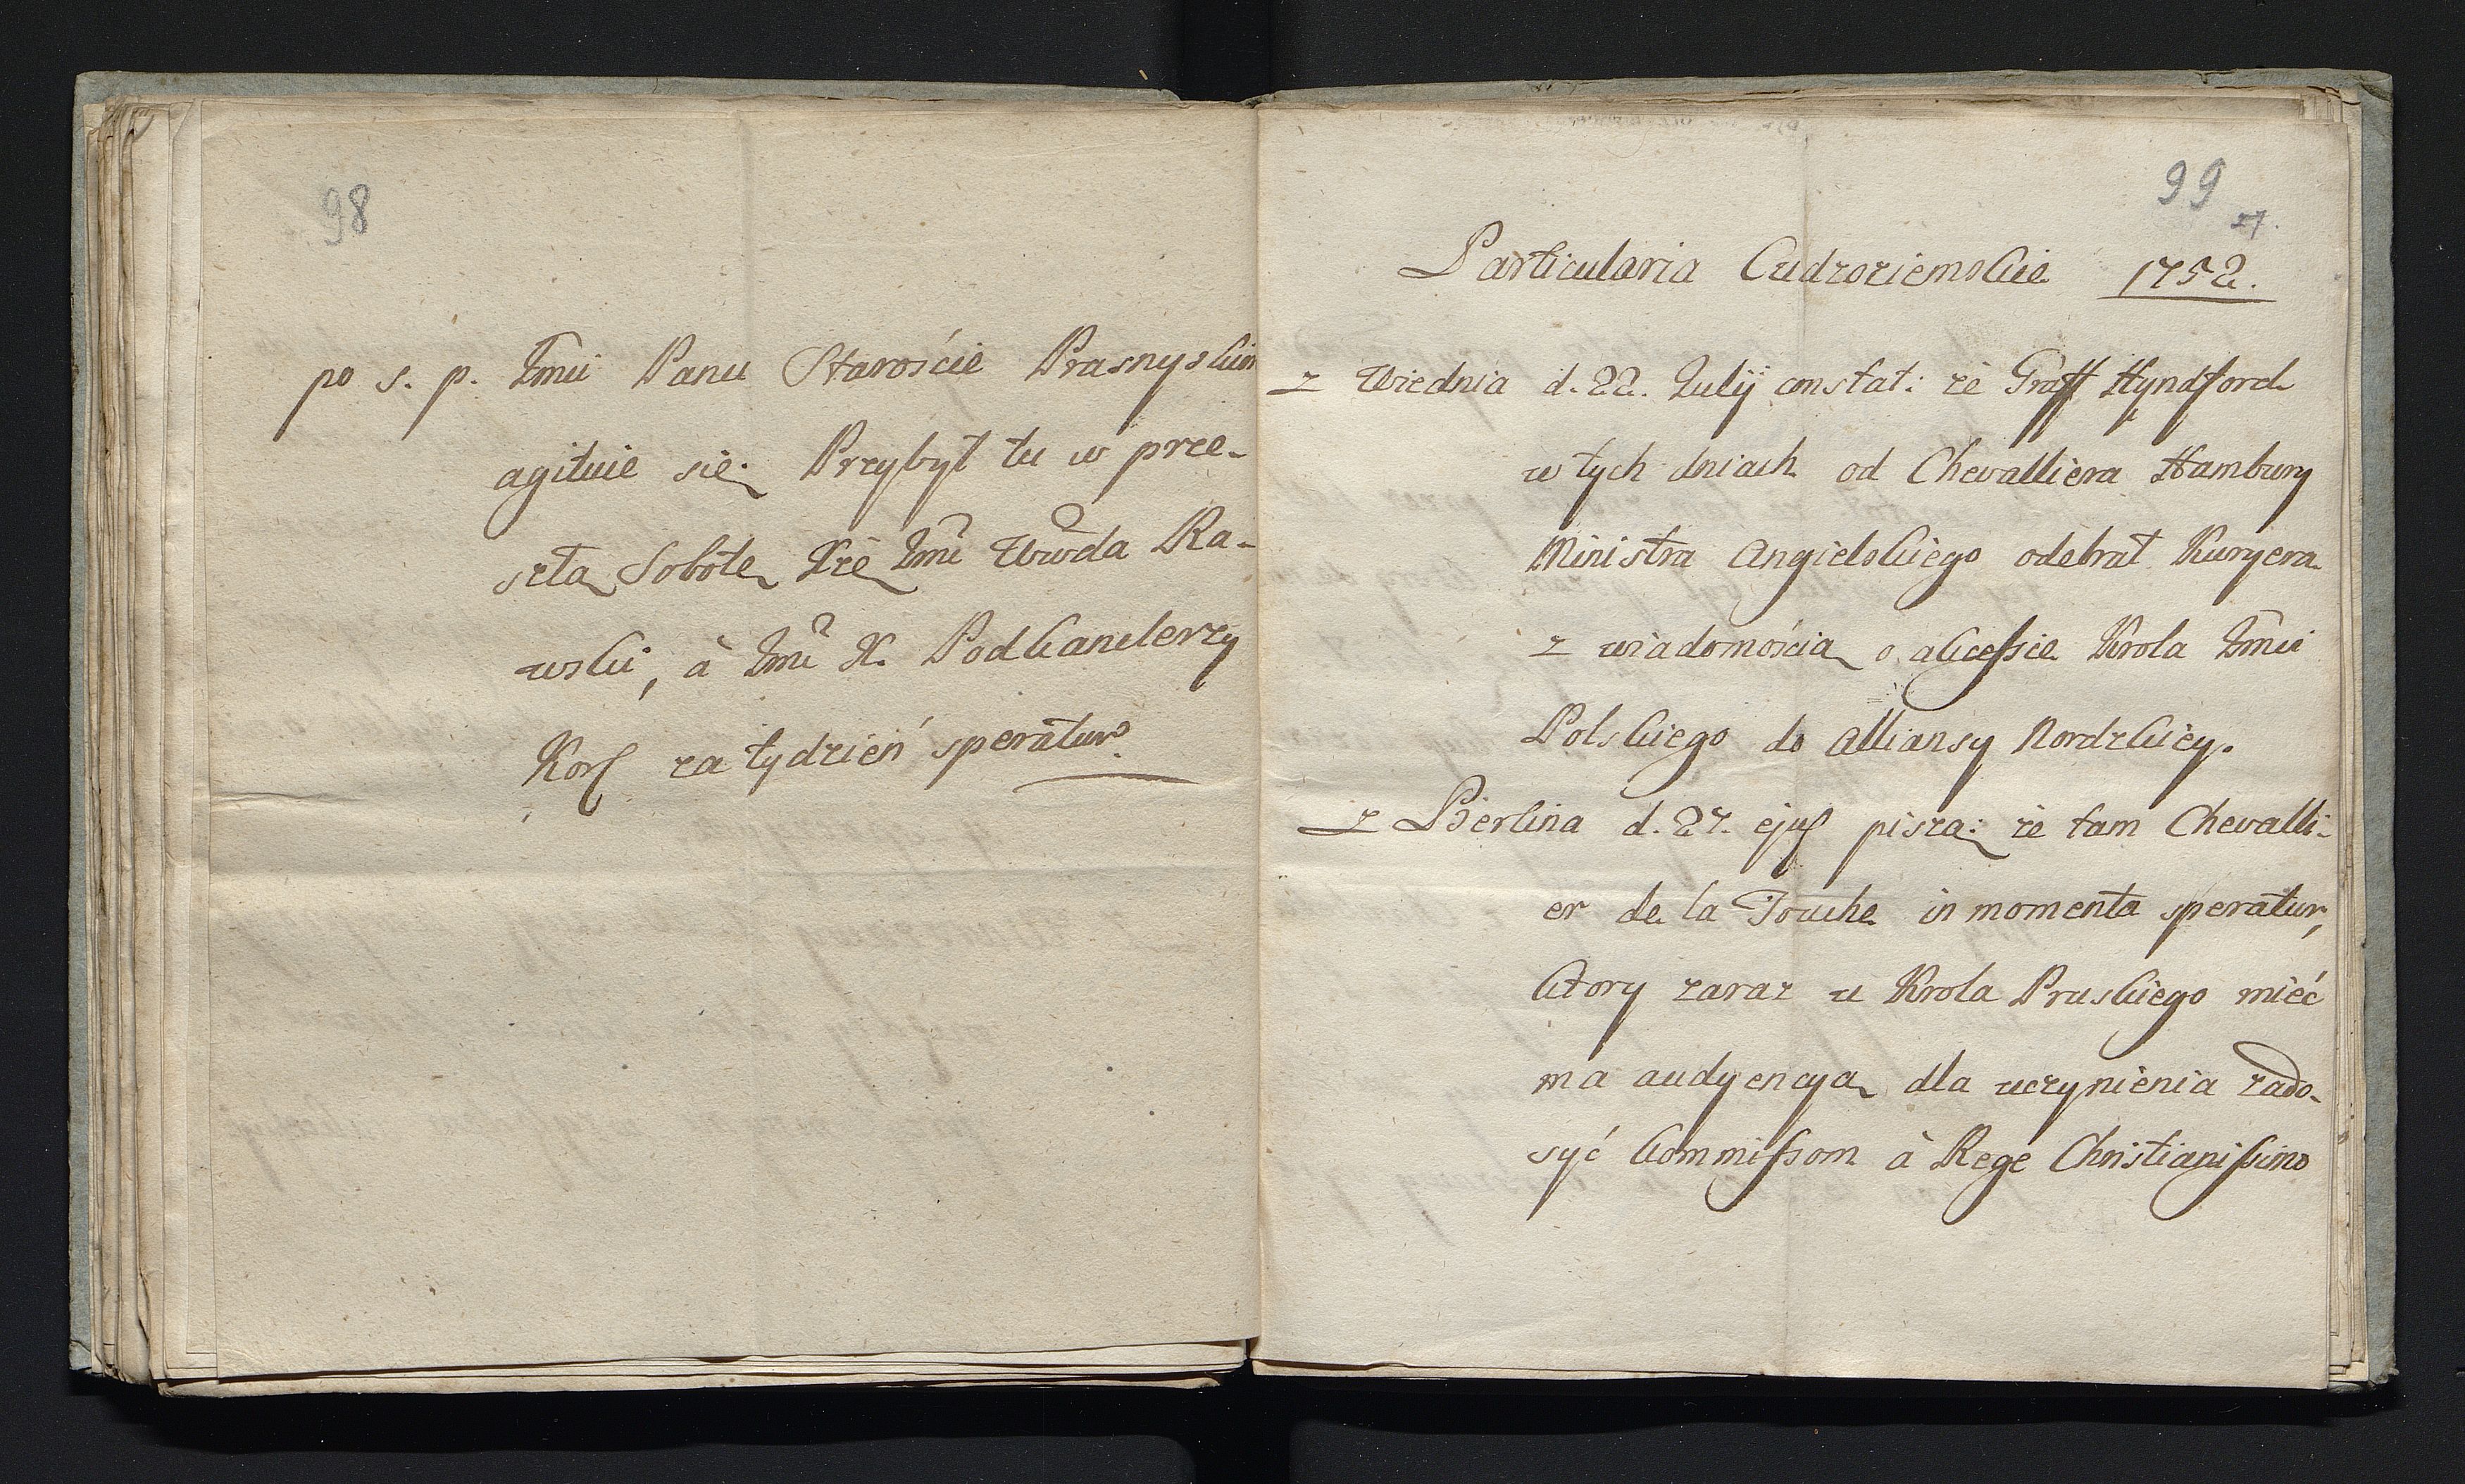 98
po s. p. Jmci Panu Staroście Prasnyskim
agituie się. Przybył tu w prze-
szłą Sobotę Xżę Jmć Wwda Ra-
wski, à Jmć X. Podkanclerzy
Kor. za tydzień speratur.
99
27.
Particularia Cudzoziemskie 1752.
z Wiednia d. 22. Julij constat: że Graff Hyndford
w tych dniach od Chevalliera Hambury
Ministra Angielskiego odebrał Kuryera
z wiadomością o akcessie Krola Jmci
Polskiego do Alliansy Nordzkiey.
z Berlina d. 27. ejus piszą: że tam Chevalli-
er de la Touche in momenta speratur,
ktory zaraz u Krola Pruskiego mieć
ma audyencyą dla uczynienia zado-
syć kommissom à Rege Christianissimo